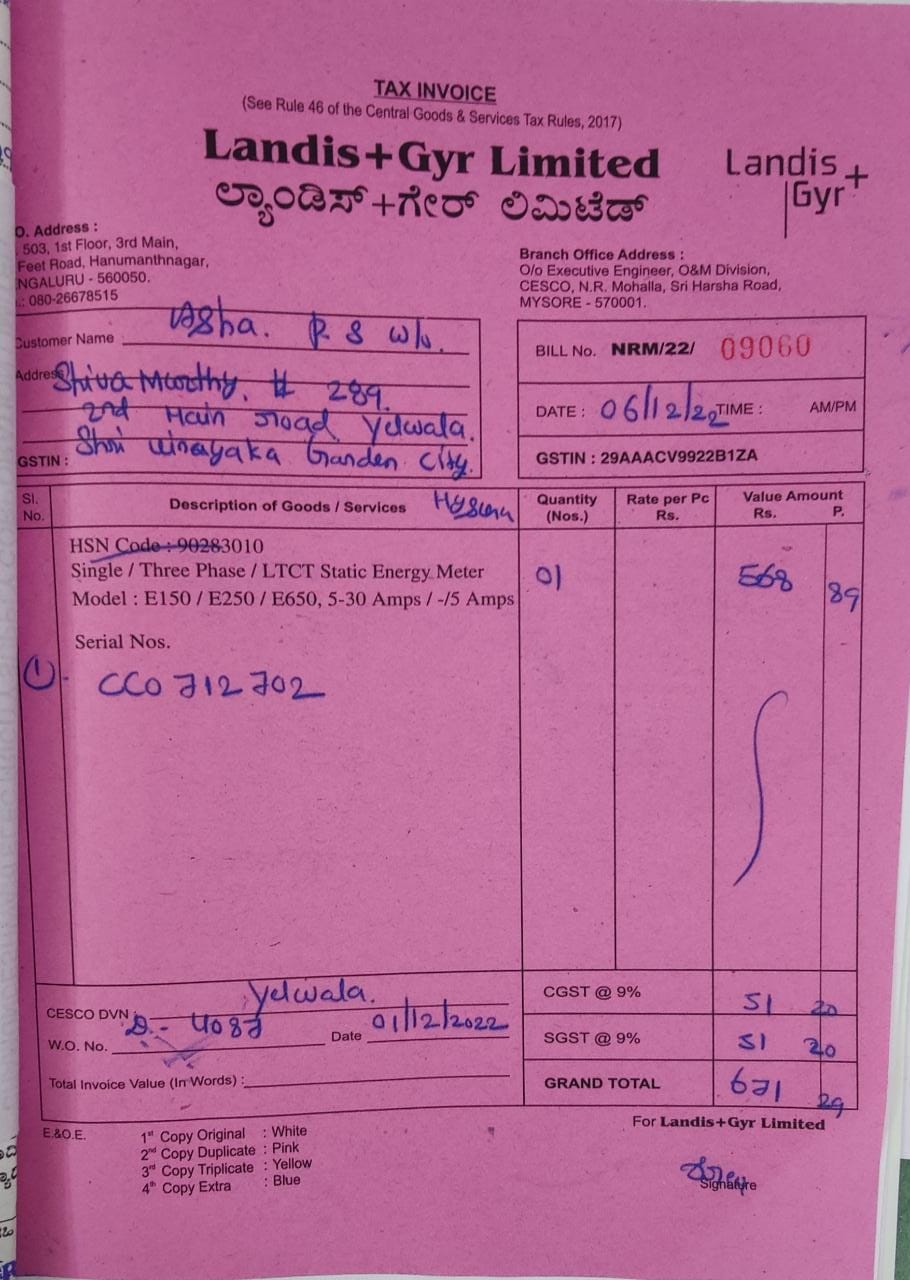 TAX INVOICE
(See Rule 46 of the Central Goods & Services Tax Rules, 2017)
Landis+Gyr Limited
ಲ್ಯಾಂಡಿಸ್+ಗೇರ್ ಲಿಮಿಟೆಡ್
Landis+
Gyr
O. Address :
503, 1st Floor, 3rd Main,
Feet Road, Hanumanthnagar,
NGALURU - 560050.
.: 080-26678515
Branch Office Address :
O/o Executive Engineer, O&M Division,
CESCO, N.R. Mohalla, Sri Harsha Road,
MYSORE - 570001.
Customer Name Asha. R S w/o.
Address Shiva Murthy. # 289.
2nd Main road Yelwala.
GSTIN : Shri Vinayaka Garden City.
BILL No. NRM/22/ 09060
DATE : 06/12/22 TIME : AM/PM
GSTIN : 29AAACV9922B1ZA
Sl. No. Description of Goods / Services Quantity (Nos.) Rate per Pc Rs. Value Amount Rs. P.
HSN Code : 90283010
Single / Three Phase / LTCT Static Energy Meter 01 568 89
Model : E150 / E250 / E650, 5-30 Amps / -/5 Amps
Serial Nos.
1 CC0712702
CESCO DVN : Yelwala.
W.O. No. D.- 4087 Date 01/12/2022
Total Invoice Value (In Words) :
CGST @ 9% 51 20
SGST @ 9% 51 20
GRAND TOTAL 671 29
E.&O.E.
1st Copy Original : White
2nd Copy Duplicate : Pink
3rd Copy Triplicate : Yellow
4th Copy Extra : Blue
For Landis+Gyr Limited
Signature